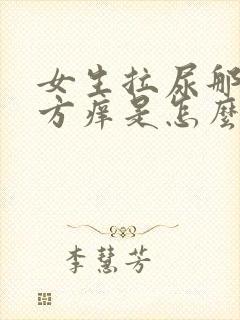 女生拉尿那
方痒是怎麼
李慧芳